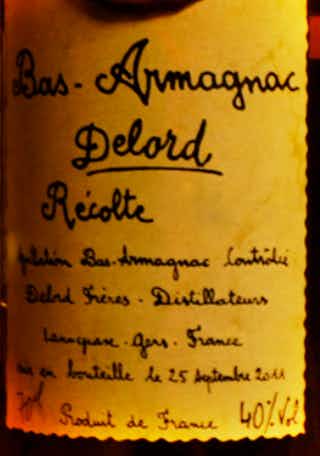 Bas-Armagnac
Delord
Récolte
Bas-Armagnac Contrôlée
Delord Frères - Distillateurs
Lannepax - Gers - France
en bouteille le 25 septembre 2011
Produit de France 40% Vol